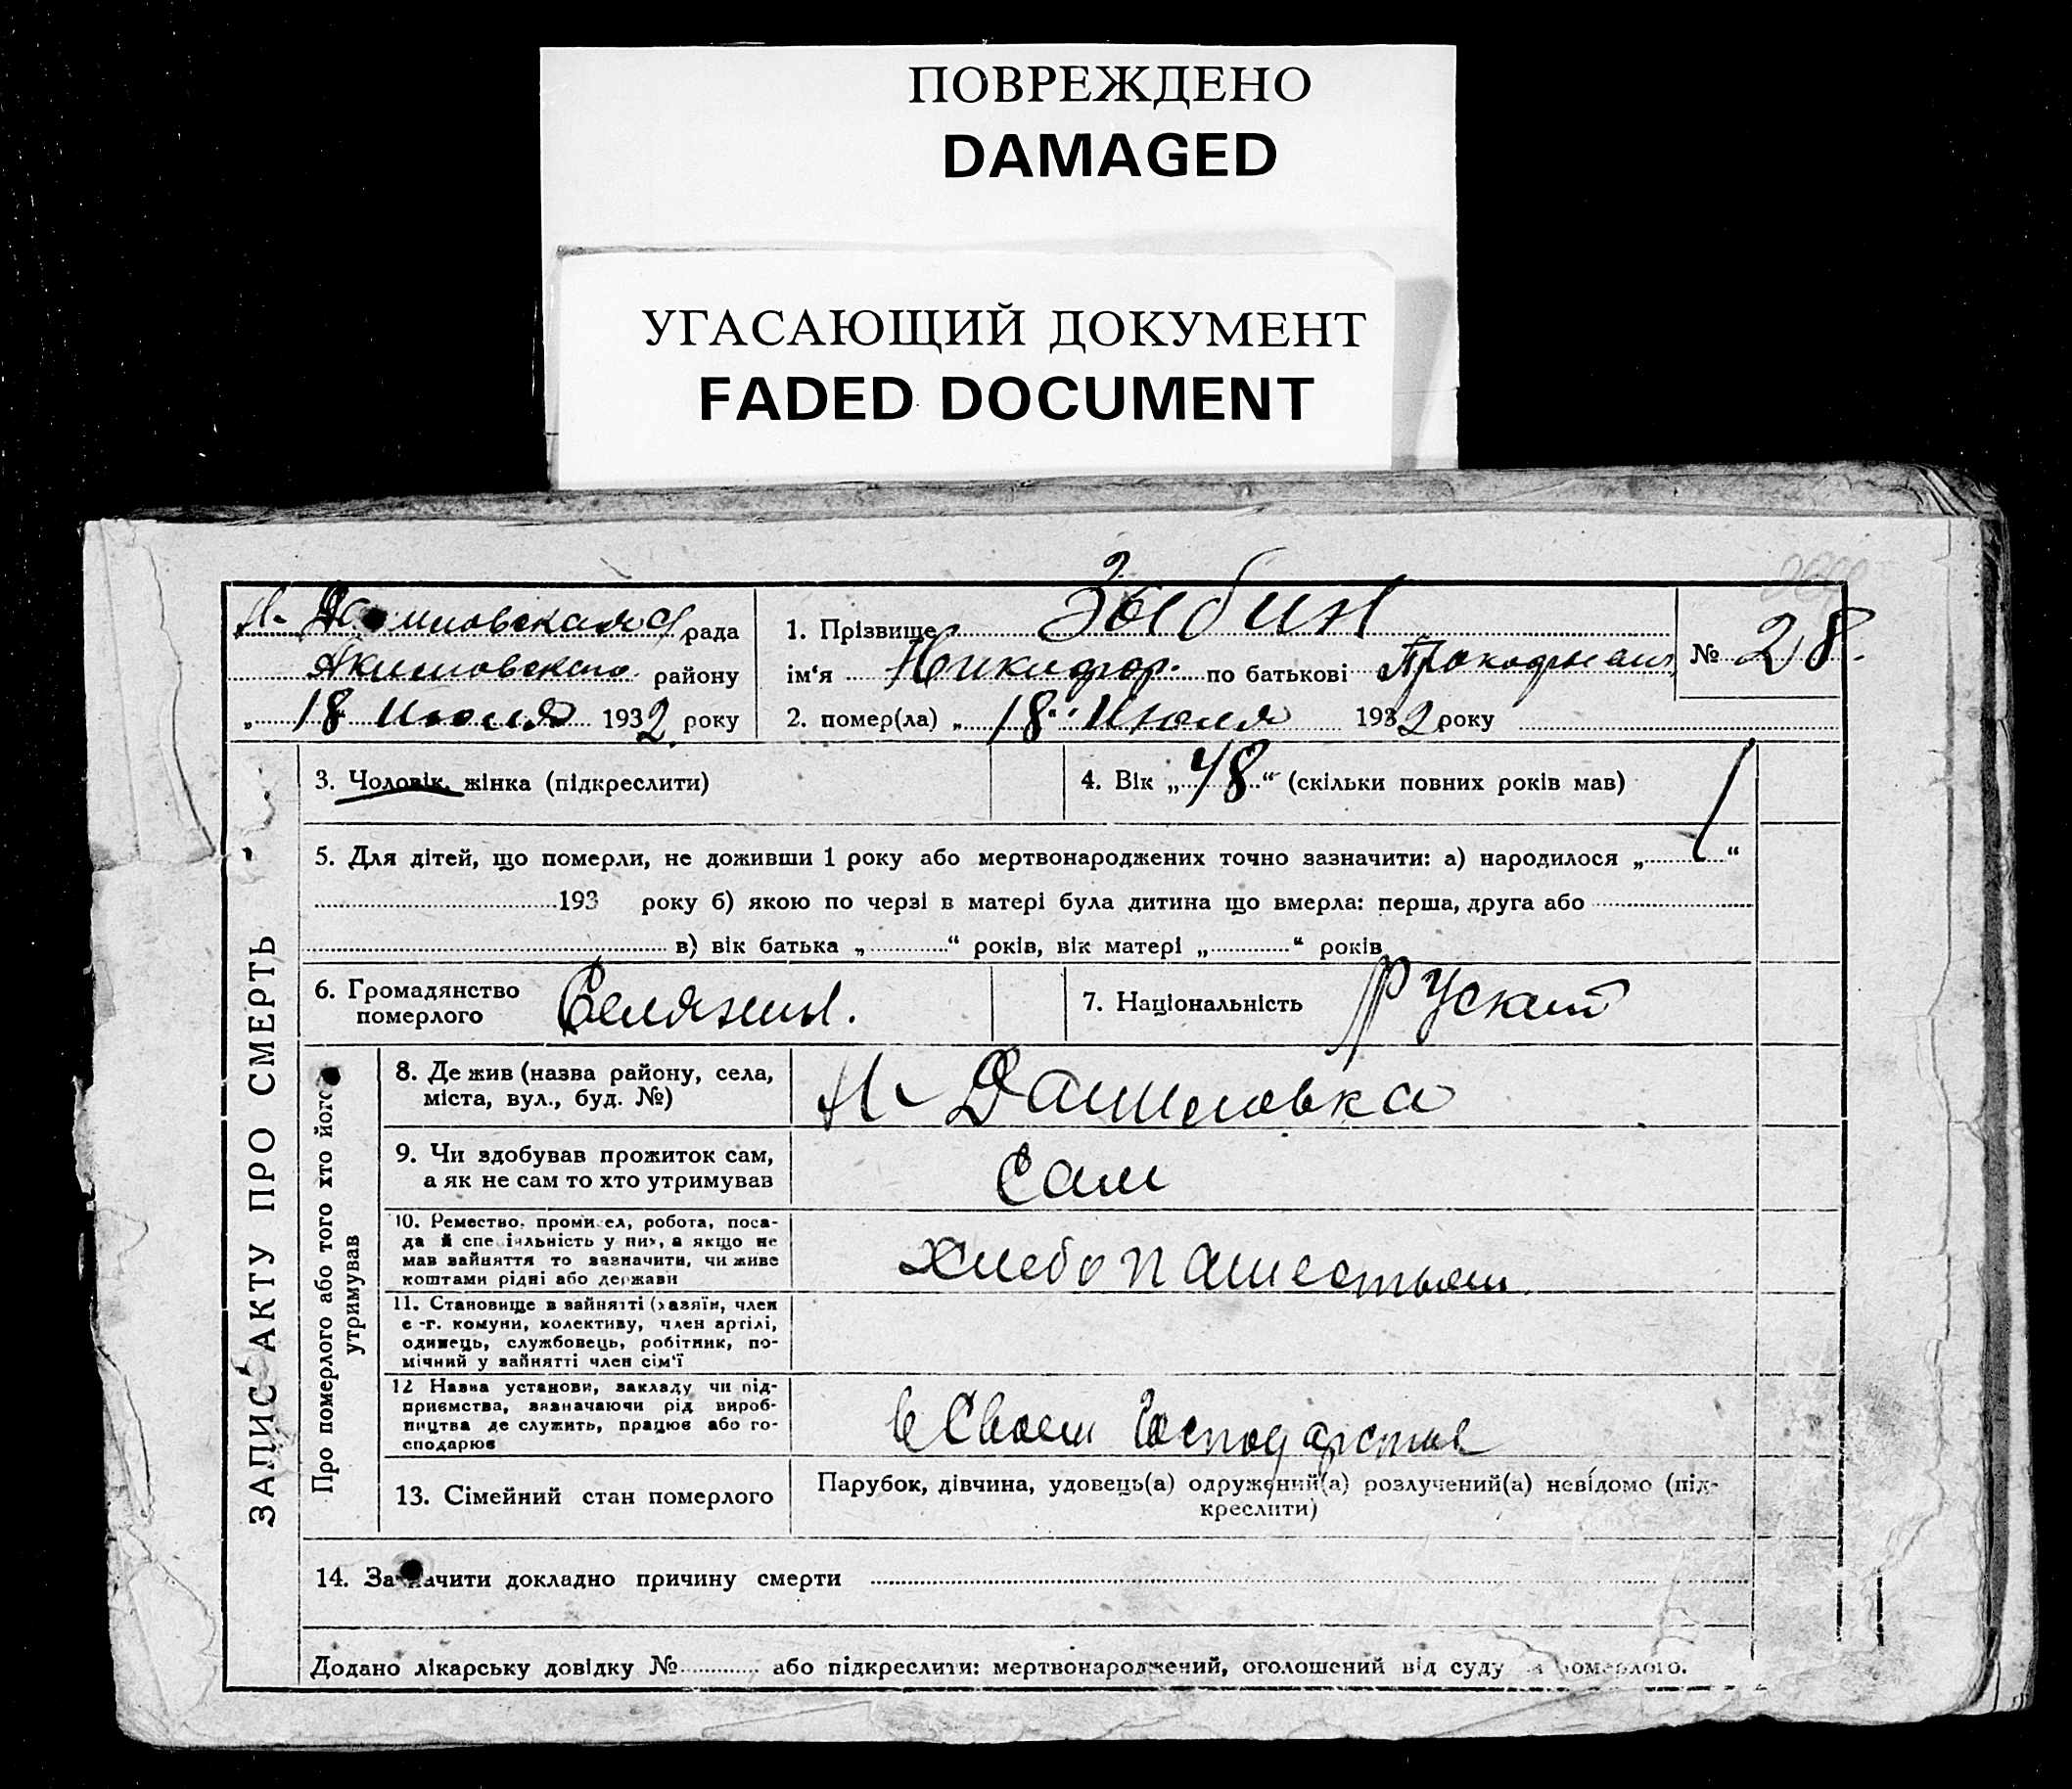 ПОВРЕЖДЕНО
DAMAGED
УГАСАЮЩИЙ ДОКУМЕНТ
FADED DOCUMENT
рада
Акимовского району
„ 18 Июля 1932 року
1. Прізвище Зыбин
ім‘я Никифор по батькові
№ 28.
2. помер(ла) „ 18 “ Июля 1932 року
ЗАПИС АКТУ ПРО СМЕРТЬ
3. Чоловік, жінка (підкреслити)
4. Вік „ 48 “ (скільки повних років мав)
5. Для дітей, що померли, не доживши 1 року або мертвонароджених точно зазначити: а) народилося „ “
193 року б) якою по черзі в матері була дитина що вмерла: перша, друга або
в) вік батька „ “ років, вік матері „ “ років
6. Громадянство
померлого
7. Національність Руский
Про померлого або того хто його
утримував
8. Де жив (назва району, села,
міста, вул., буд. №)
Н-Даниловка
9. Чи здобував прожиток сам,
а як не сам то хто утримував
Сам
10. Ремество, промисел, робота, поса-
да й спеціяльність у них, а якщо не
мав зайняття то зазначити, чи живе
коштами рідні або держави
11. Становище в зайнятті (хазяїн, член
с.-г. комуни, колективу, член артілі,
одинець, службовець, робітник, по-
мічний у зайнятті член сім‘ї
12 Назва установи, закладу чи під-
приємства, зазначаючи рід вироб-
ництва де служить, працює або го-
сподарює
в своем господарстве
13. Сімейний стан померлого
Парубок, дівчина, удовець(а) одружений(а) розлучений(а) невідомо (під-
креслити)
14. Зазначити докладно причину смерти
Додано лікарську довідку № або підкреслити: мертвонароджений, оголошений від суду за померлого.